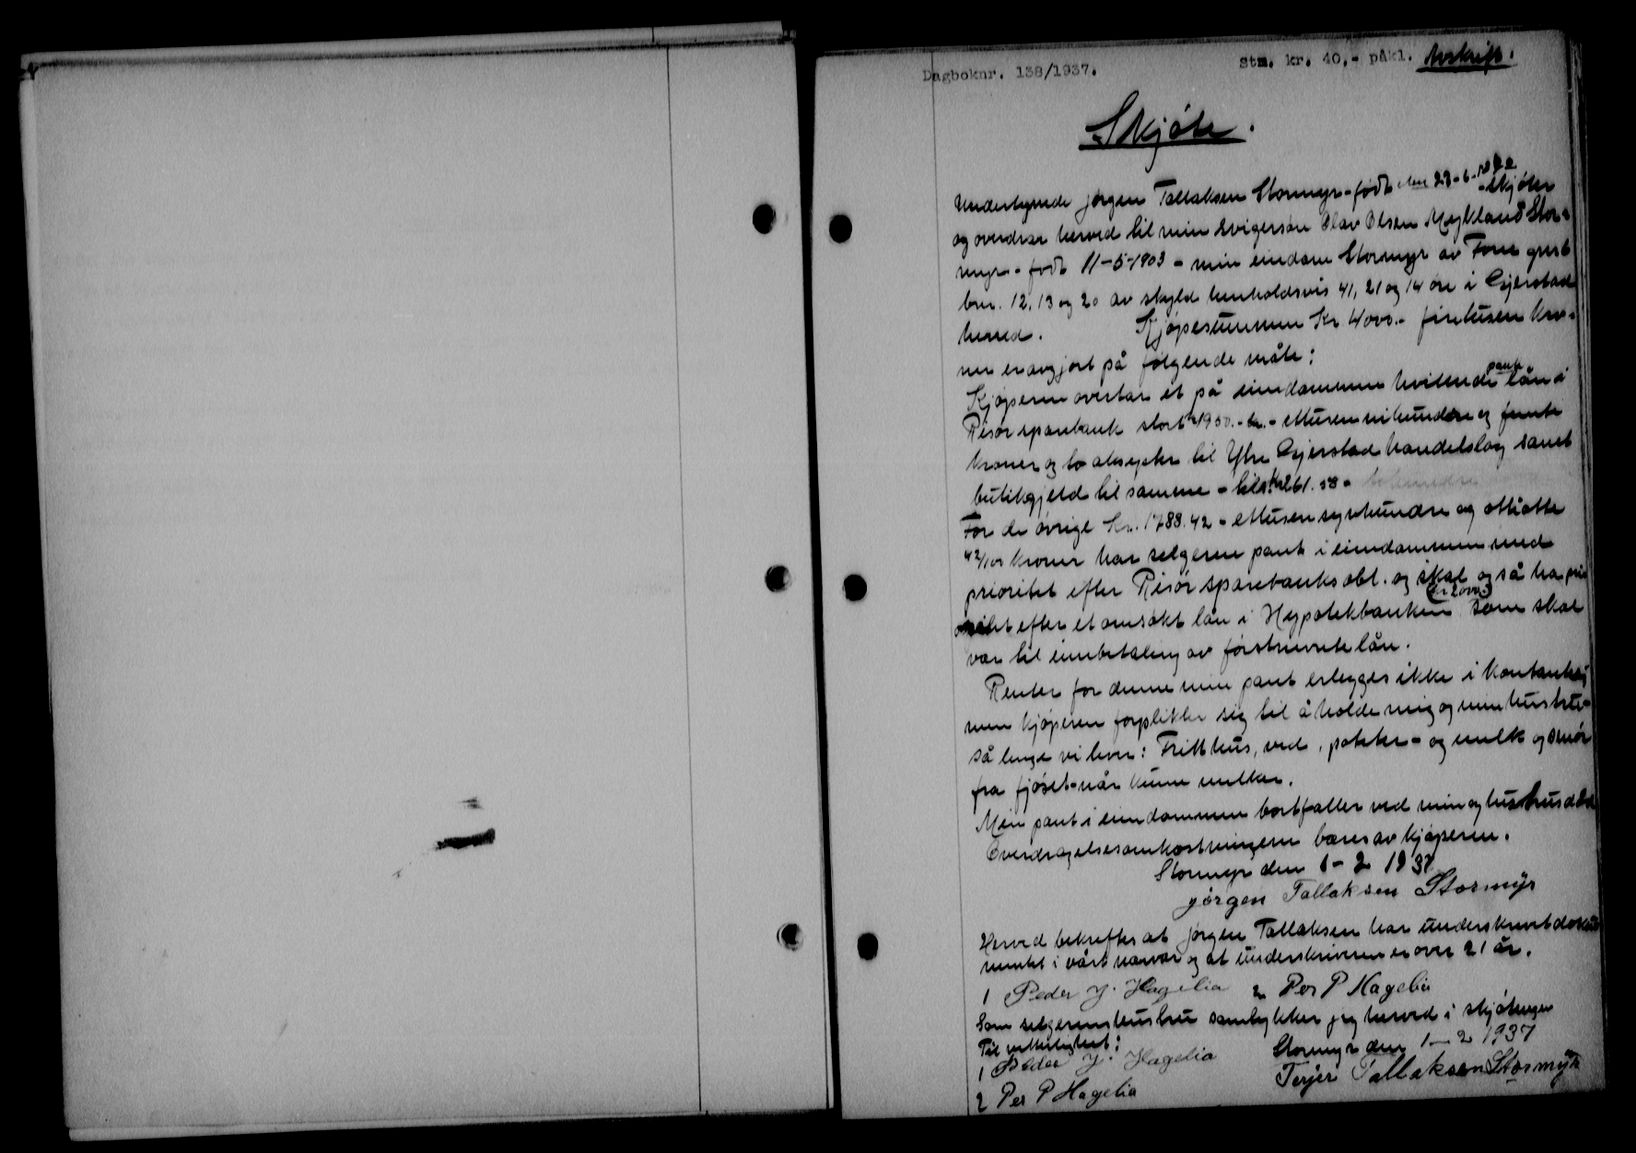 Dagboknr. 138/1937. Stm. kr. 40,- påkl. Avskrift.
Skjöte.
Undertegnede Jørgen Tallaksen Stormyr - født den 23-6- - skjøter
og overdrar herved til min svigersøn Olav Olsen Mykland Stor-
myr - født 11-5-1903 - min eiendom Stormyr av Fone gnr 6
bnr. 12, 13 og 20 av skyld henholdsvis 41, 21 og 14 øre i Gjerstad
herred. Kjøpesummen Kr 4000.- firetusen kro-
ner er avgjort på følgende måte:
Kjøperen overtar et på eiendommen hvilende pante lån i
Risør sparebank stort kr 1950.- - ettusen nihundre og femti
kroner og to aksepter til Ytre Gjerstad handelslag samt
butikgjeld til samme - tils. kr 261.58 -
For de øvrige Kr. 1788.42 - ettusen syvhundre og ottiåtte
42/100 kroner har selgeren pant i eiendommen med
prioritet efter Risør sparebanks obl. og skal og så ha pri
oritet efter et omsøkt lån i Hypotekbanken (kr 2000.-) som skal
være til innbetaling av førstnevnte lån.
Renter for denne min pant erlegges ikke i kontanter,
men kjøperen forplikter sig til å holde mig og min hustru -
så lenge vi lever: Fritt hus, ved, poteter - og melk og smør
fra fjøset - når kuene melker.
Min pant i eiendommen bortfaller ved min og hustrus død
Overdragelsesomkostningene bæres av kjøperen.
Stormyr den 1-2 1937
Jørgen Tallaksen Stormyr
Herved bekreftes at Jørgen Tallaksen har underskrevet doku
mentet i vårt nærvær og at underskriveren er over 21 år.
1 Peder J. Hagelia 2 Per P Hagelia
Som selgerens hustru samtykker jeg herved i skjøtingen
Til vitterlighet: Stormyr den 1-2 1937
1 Peder J. Hagelia Terjer Tallaksen Stormyr
2 Per P Hagelia